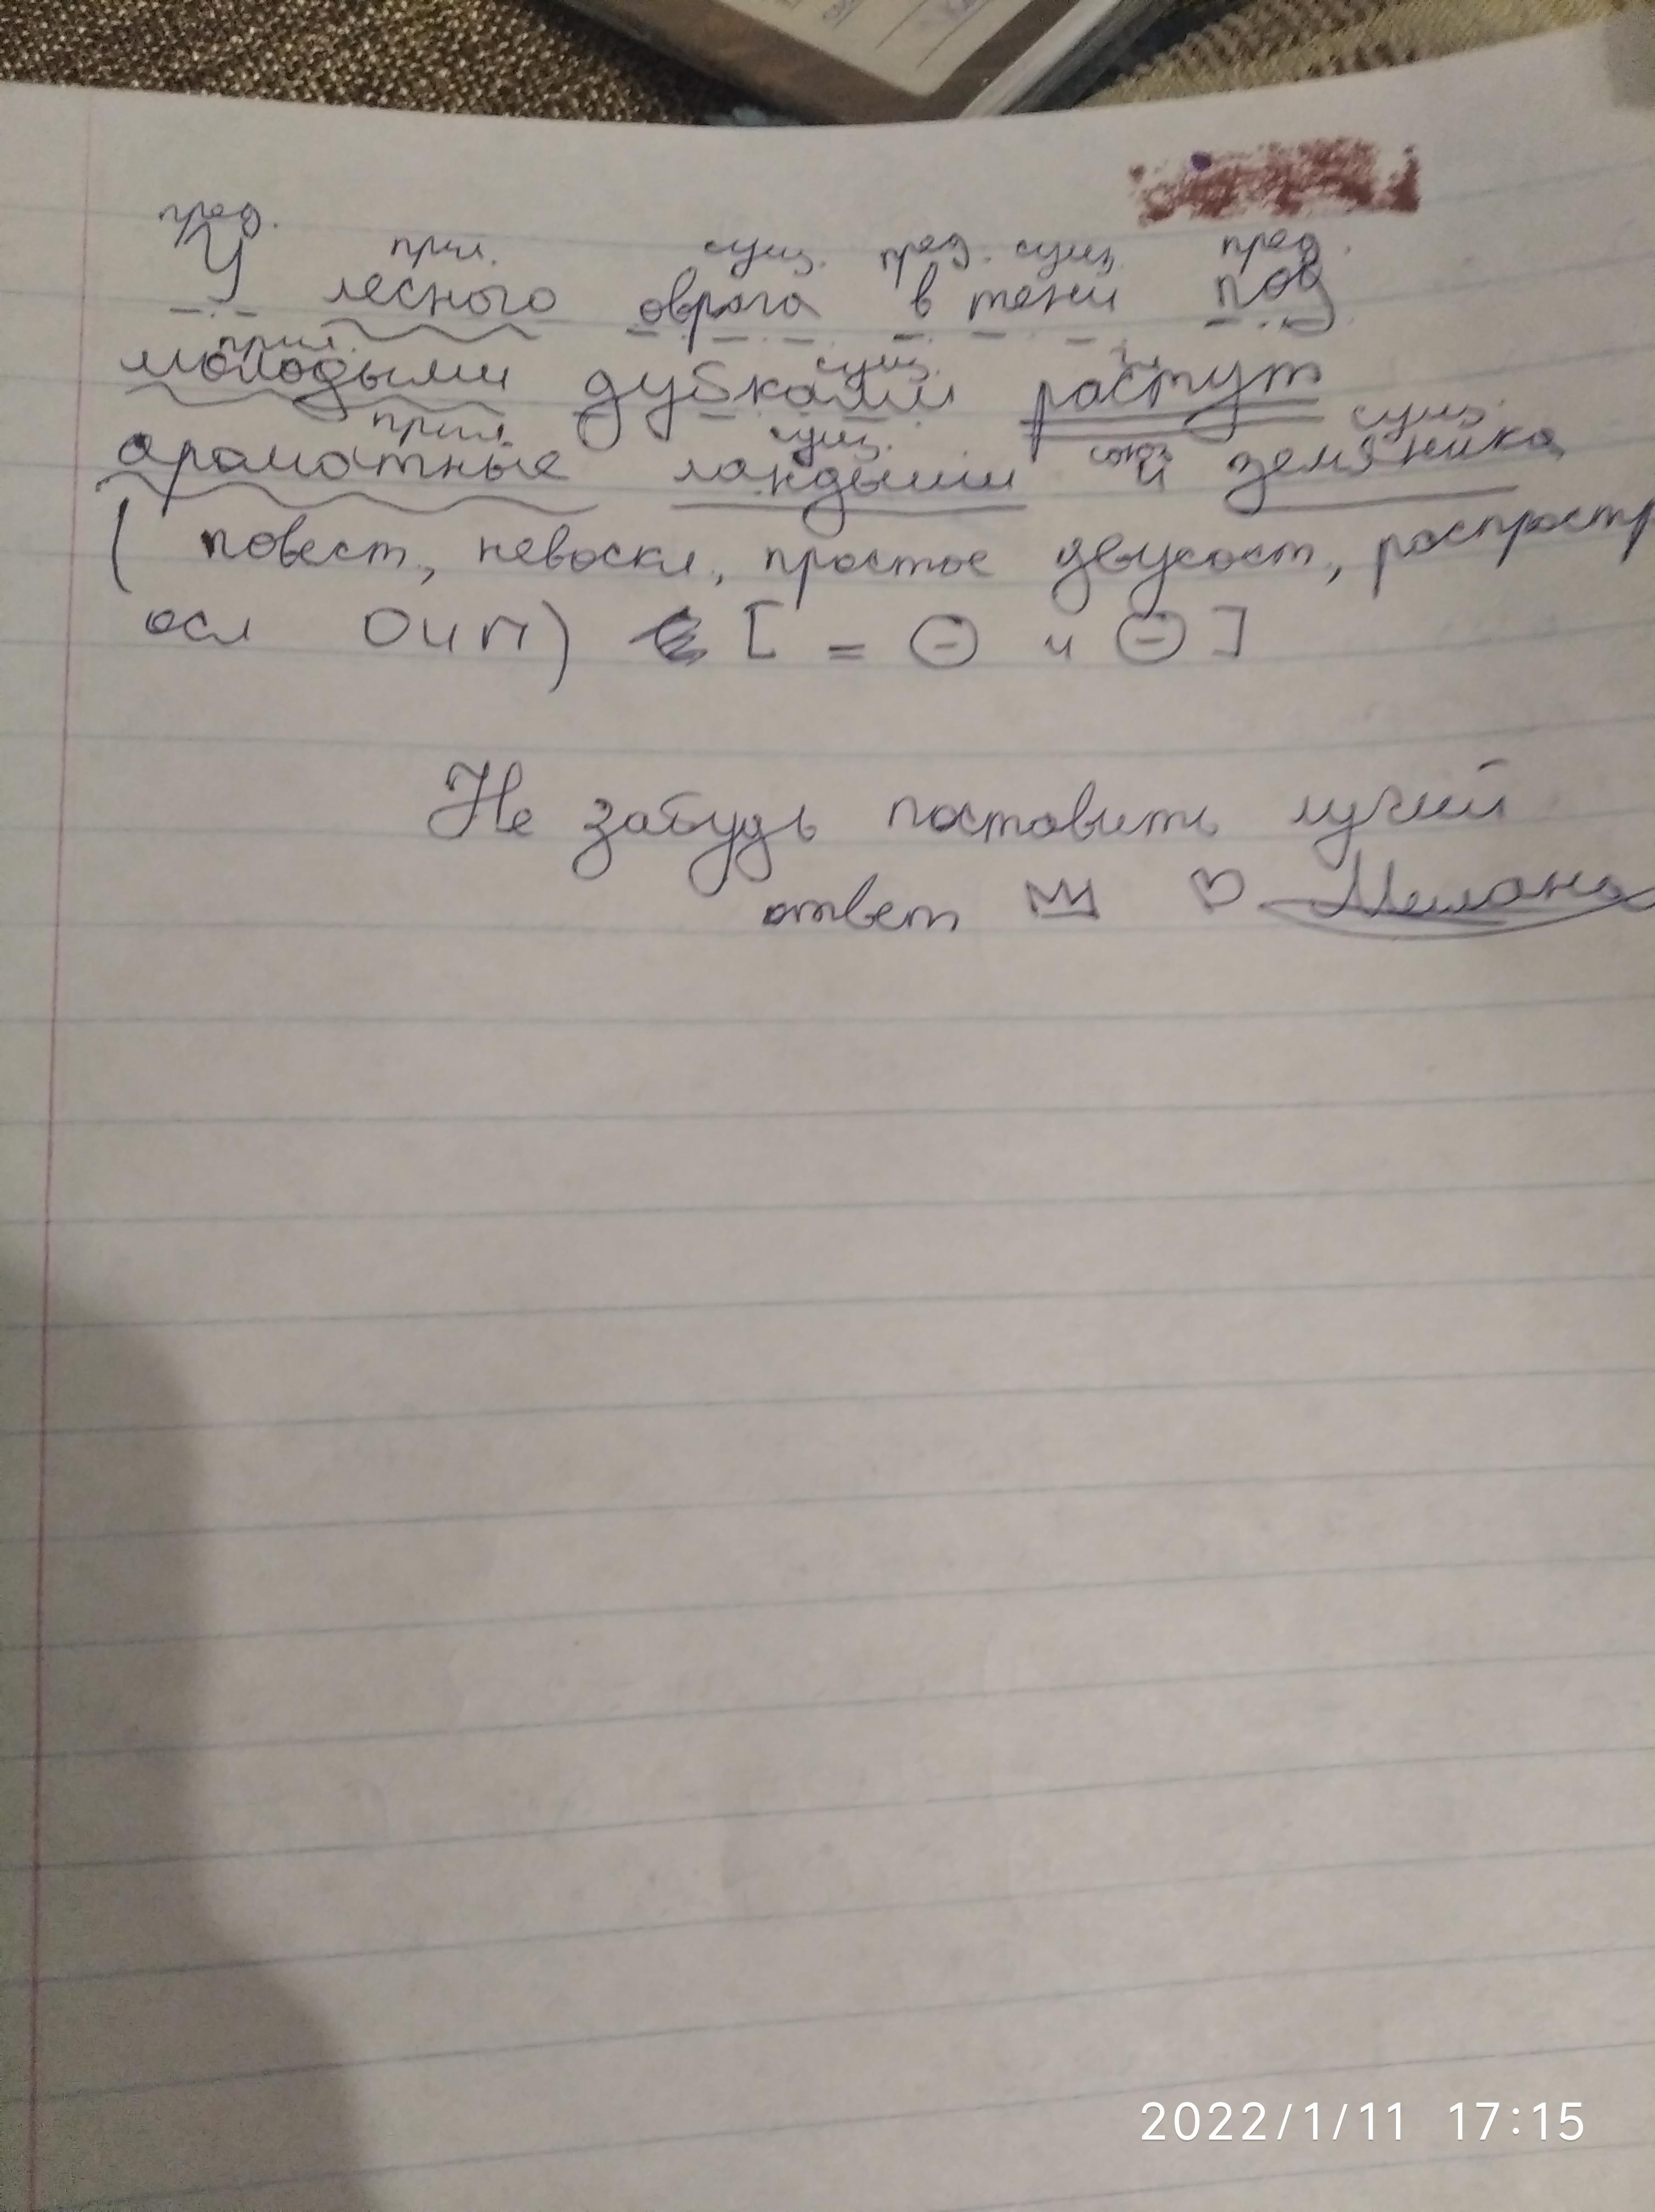 пред.
У лесного оврага в тени под
прил. сущ. пред. сущ. пред.
молодыми дубками растут
прил. сущ. гл.
ароматные ландыши и земляника
прил. сущ. союз сущ.
( повест, невоскл, простое двусост, распростр
осл ОЧП) [ = ⊖ и ⊖ ]
Не забудь поставить лучий
ответ ♡ Милана
2022/1/11 17:15